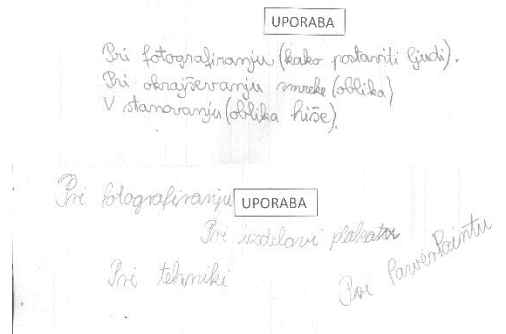 UPORABA
Pri fotografiranju (kako postaviti ljudi).
Pri okrajševanju smreke (oblika)
V stanovanju (oblika hiše).
Pri fotografiranju
UPORABA
Pri izdelavi plakatov
Pri tehniki
Pri PawerPointu